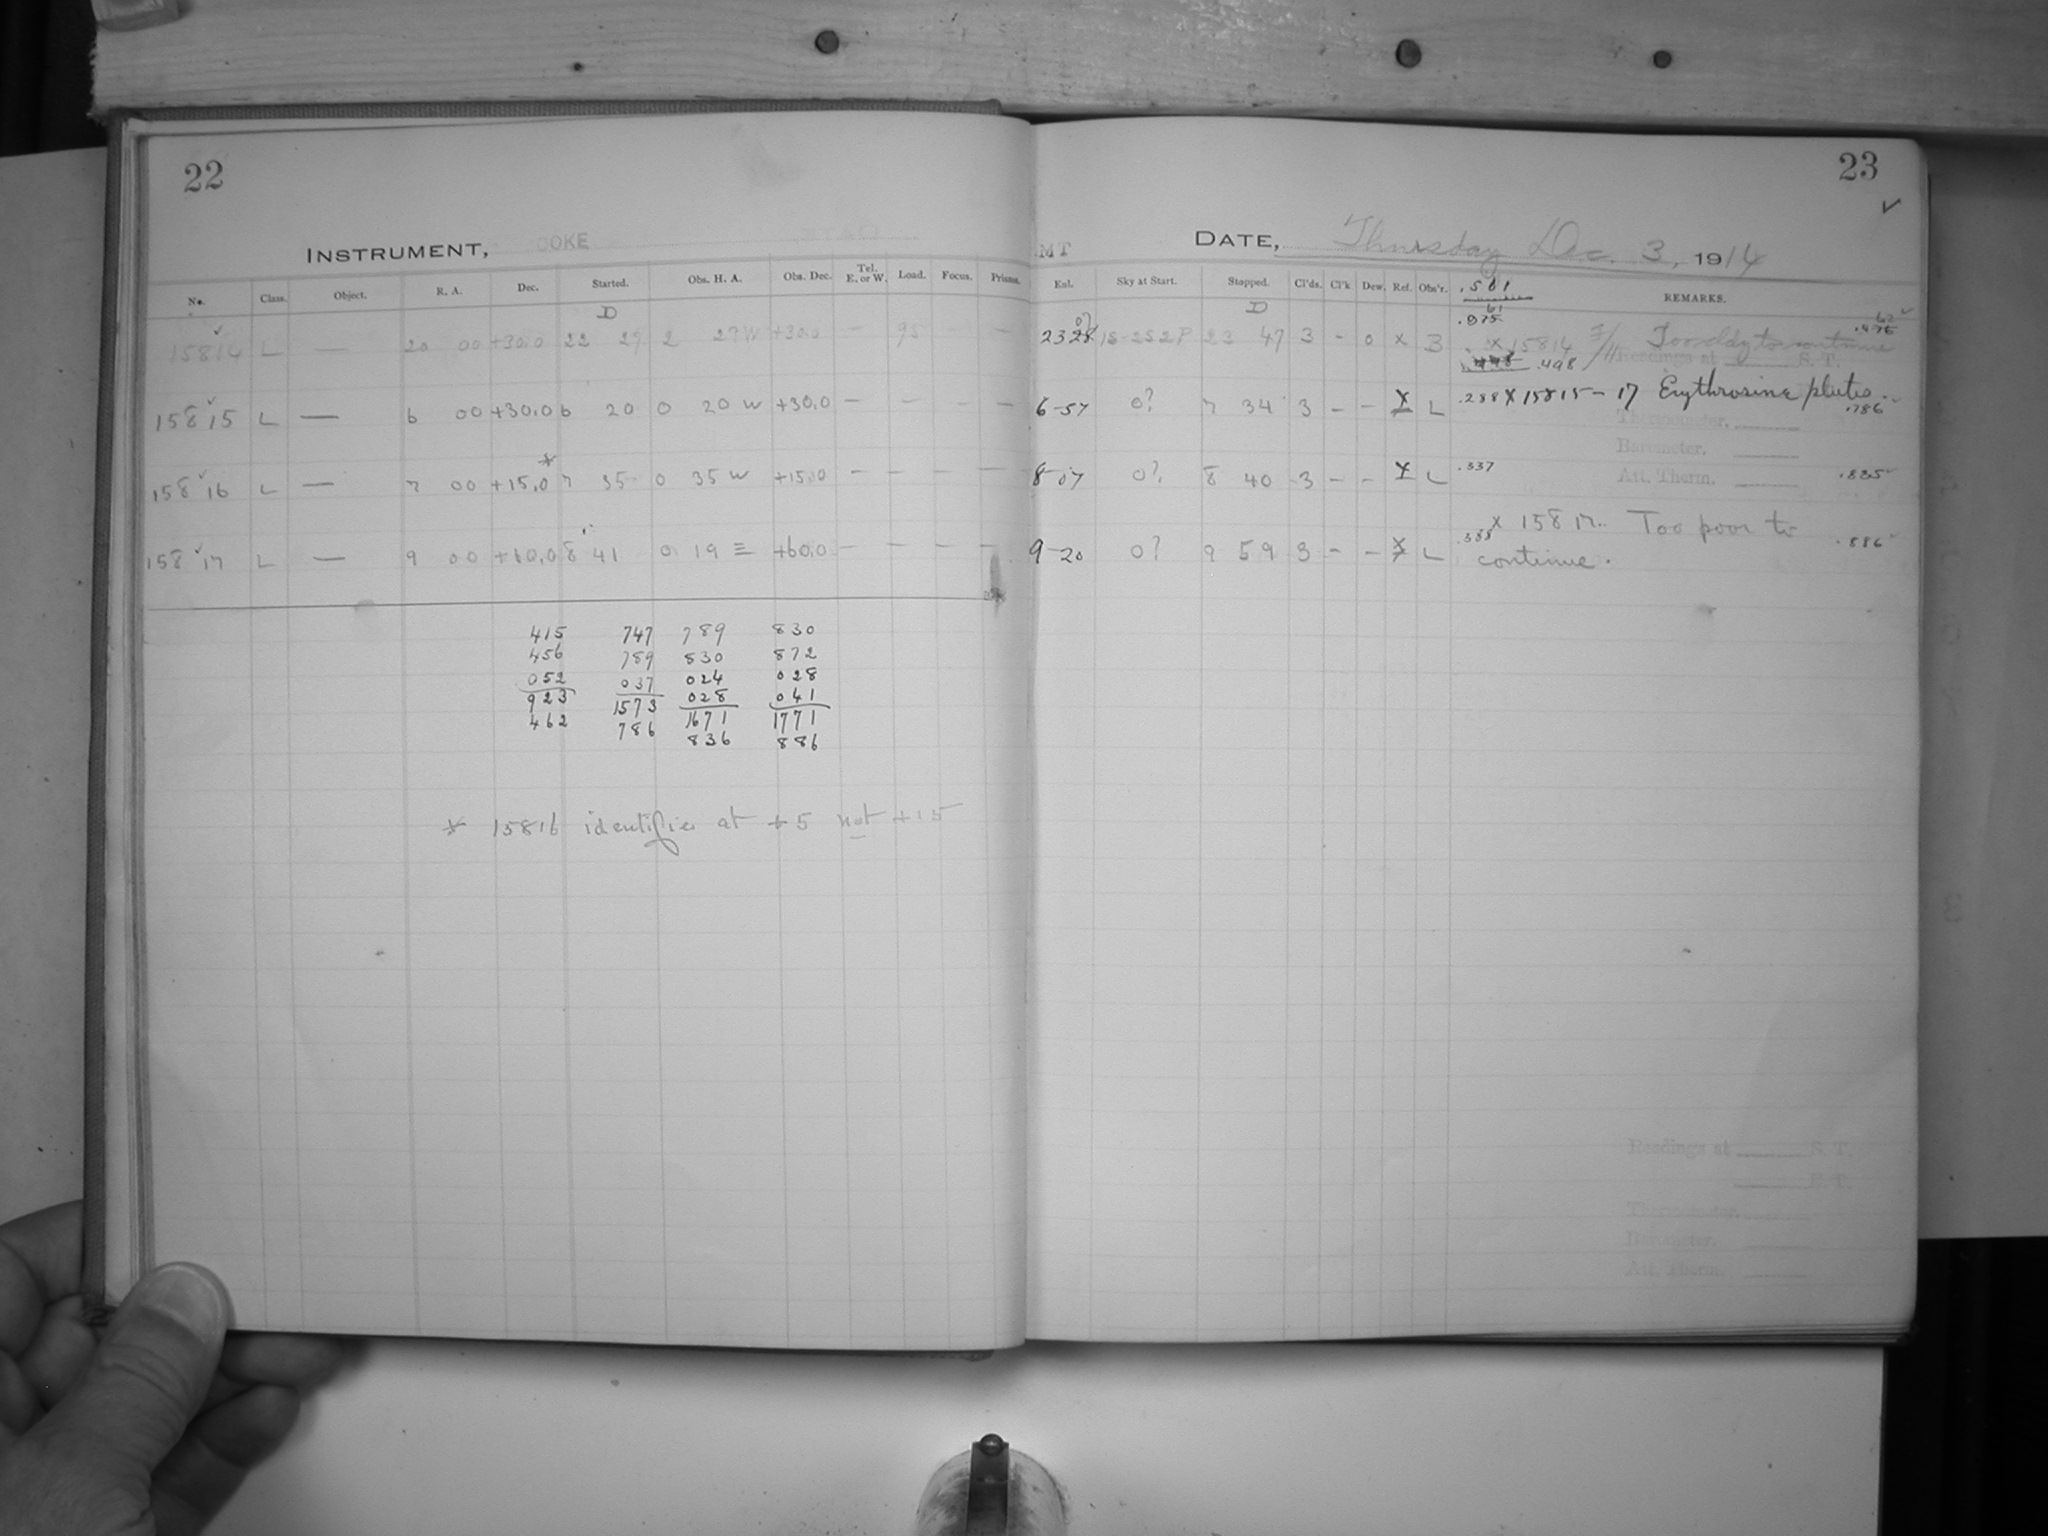 22
INSTRUMENT, COOKE
No. Class. Object. R. A. Dec. Started. Obs. H. A. Obs. Dec. Tel. E. or W. Load. Focus. Prisms.
D
15814 L — 20 00 +30.0 22 29 2 27 W +30.0 — 95 — —
15815 L — 6 00 +30.0 6 20 0 20 W +30.0 — — — —
*
15816 L — 7 00 +15.0 7 35 0 35 W +15.0 — — — —
15817 L — 9 00 +60.0 8 41 0 19 E +60.0 — — — —
415 747 789 830
456 789 830 872
052 037 024 028
923 1573 028 041
462 786 1671 1771
836 886
* 15816 identifies at +5 not +15
23
✓
MT
DATE, Thursday Dec. 3, 1914
Ent. Sky at Start. Stopped. Cl'ds. Cl'k Dew. Ref. Obs'r. REMARKS.
.561
D
23 28 15-252P 23 47 3 - 0 x 3
x 15814 Too cldy to continue
.498
Readings at S. T.
6-57 0? 7 34 3 - - x L .288 x 15815-17 Erythrosine plates. .786
Thermometer.
Barometer.
8-07 0? 8 40 3 - - x L .337 .835
Att. Therm.
x 15817. Too poor to
9-20 0? 9 59 3 - - x L .388 .886
continue.
Readings at S. T.
P. T.
Thermometer.
Barometer.
Att. Therm.